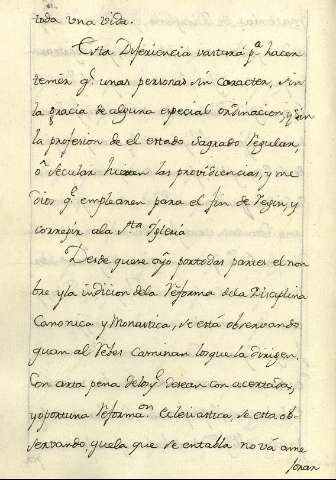 toda una vida.
Esta Diferiencia vastará pª hacer
temer q.^e unas personas sin caracter, sin
la gracia de alguna especial ordinacion, y sin
la profesion de el estado Sagrado Regular,
ó Secular las providiencias, y me
dios q.^e emplearen para el fin de regir, y
corregir ala S.^ta Iglesia
Desde que se oyó por todas partes el nom
bre y la indicion dela Reforma dela Disciplina
Canonica y Monastica, se está observando
quam al Rebes Caminan los que la dirigen.
Con arta pena delos q.^e desean con acertada,
y oportuna Reforma^on Eclesiastica, se esta ob-
servando, que la que se entabla no vá ame
joran